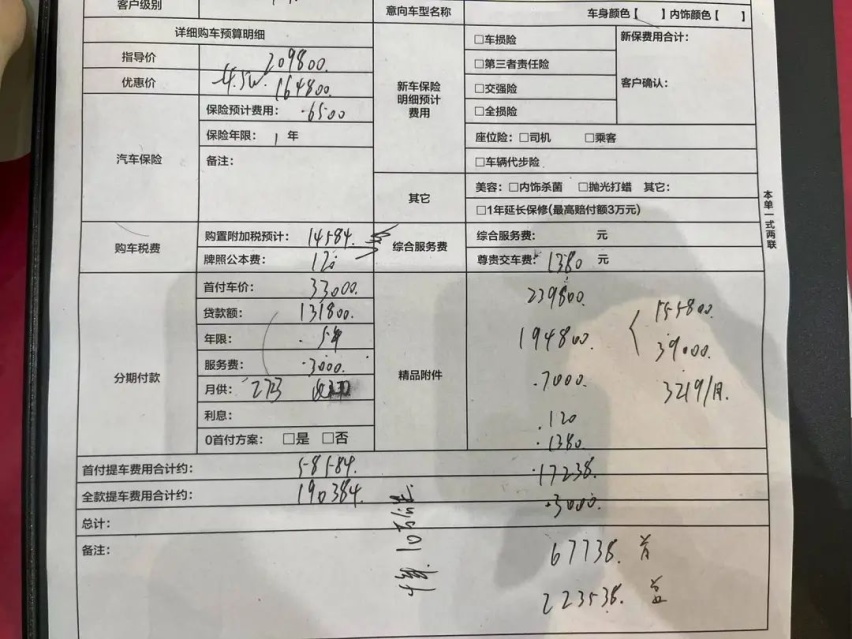 客户级别
意向车型名称 车身颜色【 】内饰颜色【 】
详细购车预算明细
指导价 209800.
优惠价 4.5W. 164800.
汽车保险
保险预计费用: 6500
保险年限: 1 年
备注:
购车税费
购置附加税预计: 14584.
牌照公本费: 120
分期付款
首付车价: 33000.
贷款额: 131800.
年限: 5年
服务费: 3000.
月供: 2723
利息:
0首付方案: □是 □否
首付提车费用合计约: 58584.
全款提车费用合计约: 190384.
总计:
备注:
新车保险
明细预计
费用
□车损险
□第三者责任险
□交强险
□全损险
新保费用合计:
客户确认:
座位险: □司机 □乘客
□车辆代步险
其它
美容: □内饰杀菌 □抛光打蜡 其它:
□1年延长保修(最高赔付额3万元)
综合服务费
综合服务费: 元
尊贵交车费: 1380 元
精品附件
239800.
194800. 155800.
39000.
7000. 3219/月.
120
1380.
17238.
3000.
67738. 首
223538. 全
本单一式两联